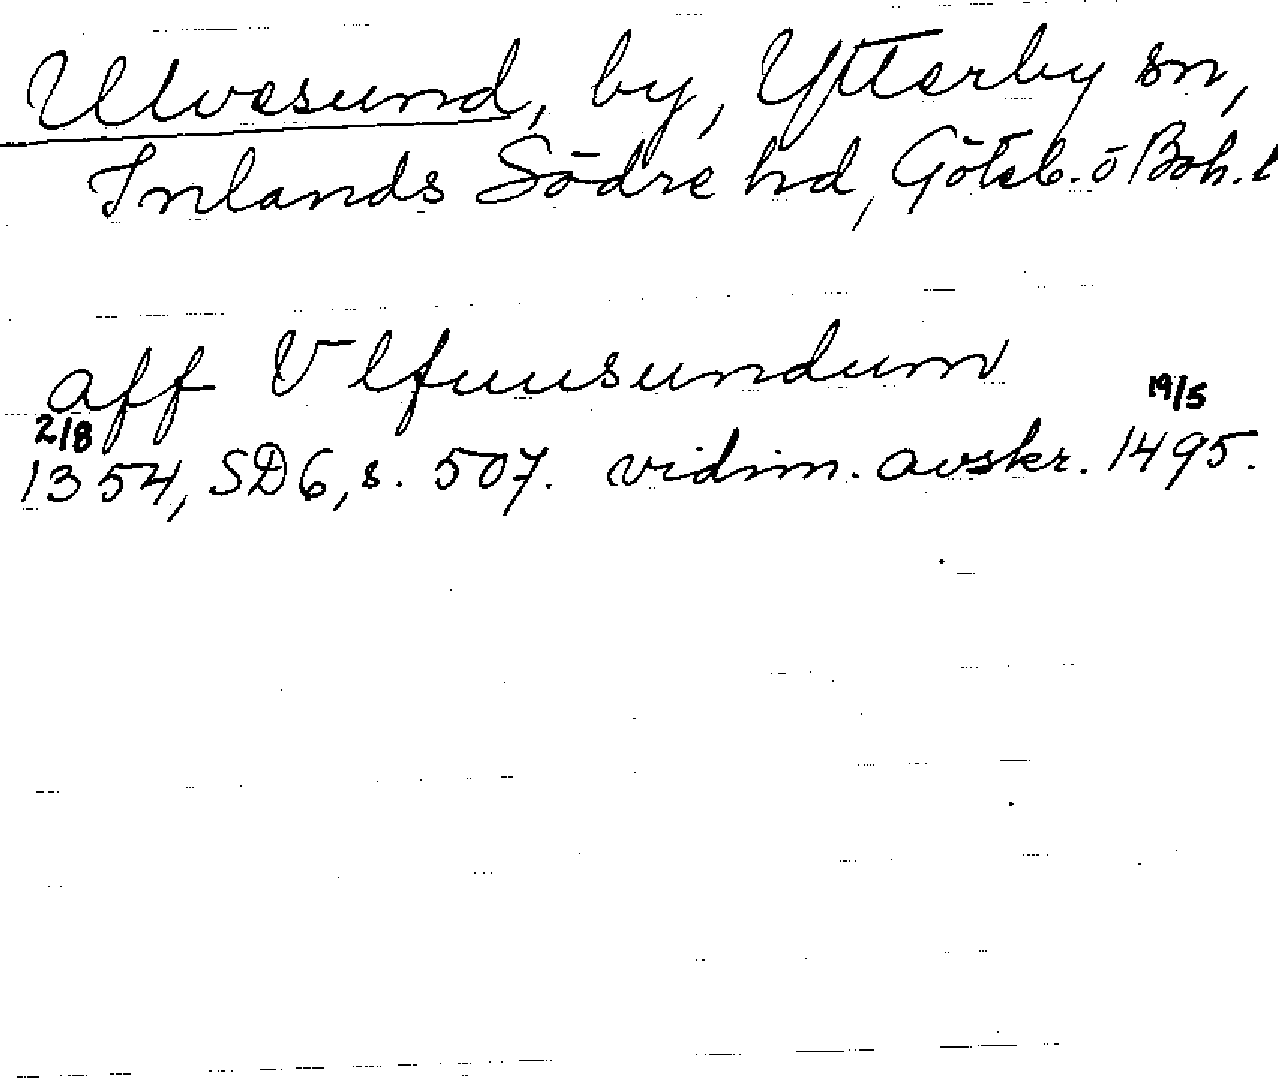 Ulvesund, by, Ytterby sn,
Inlands Södre hd, Göteb. o Boh. l
aff Vlfuusundum
2/8 19/5
1354, SD6, s. 507. vidim. avskr. 1495.